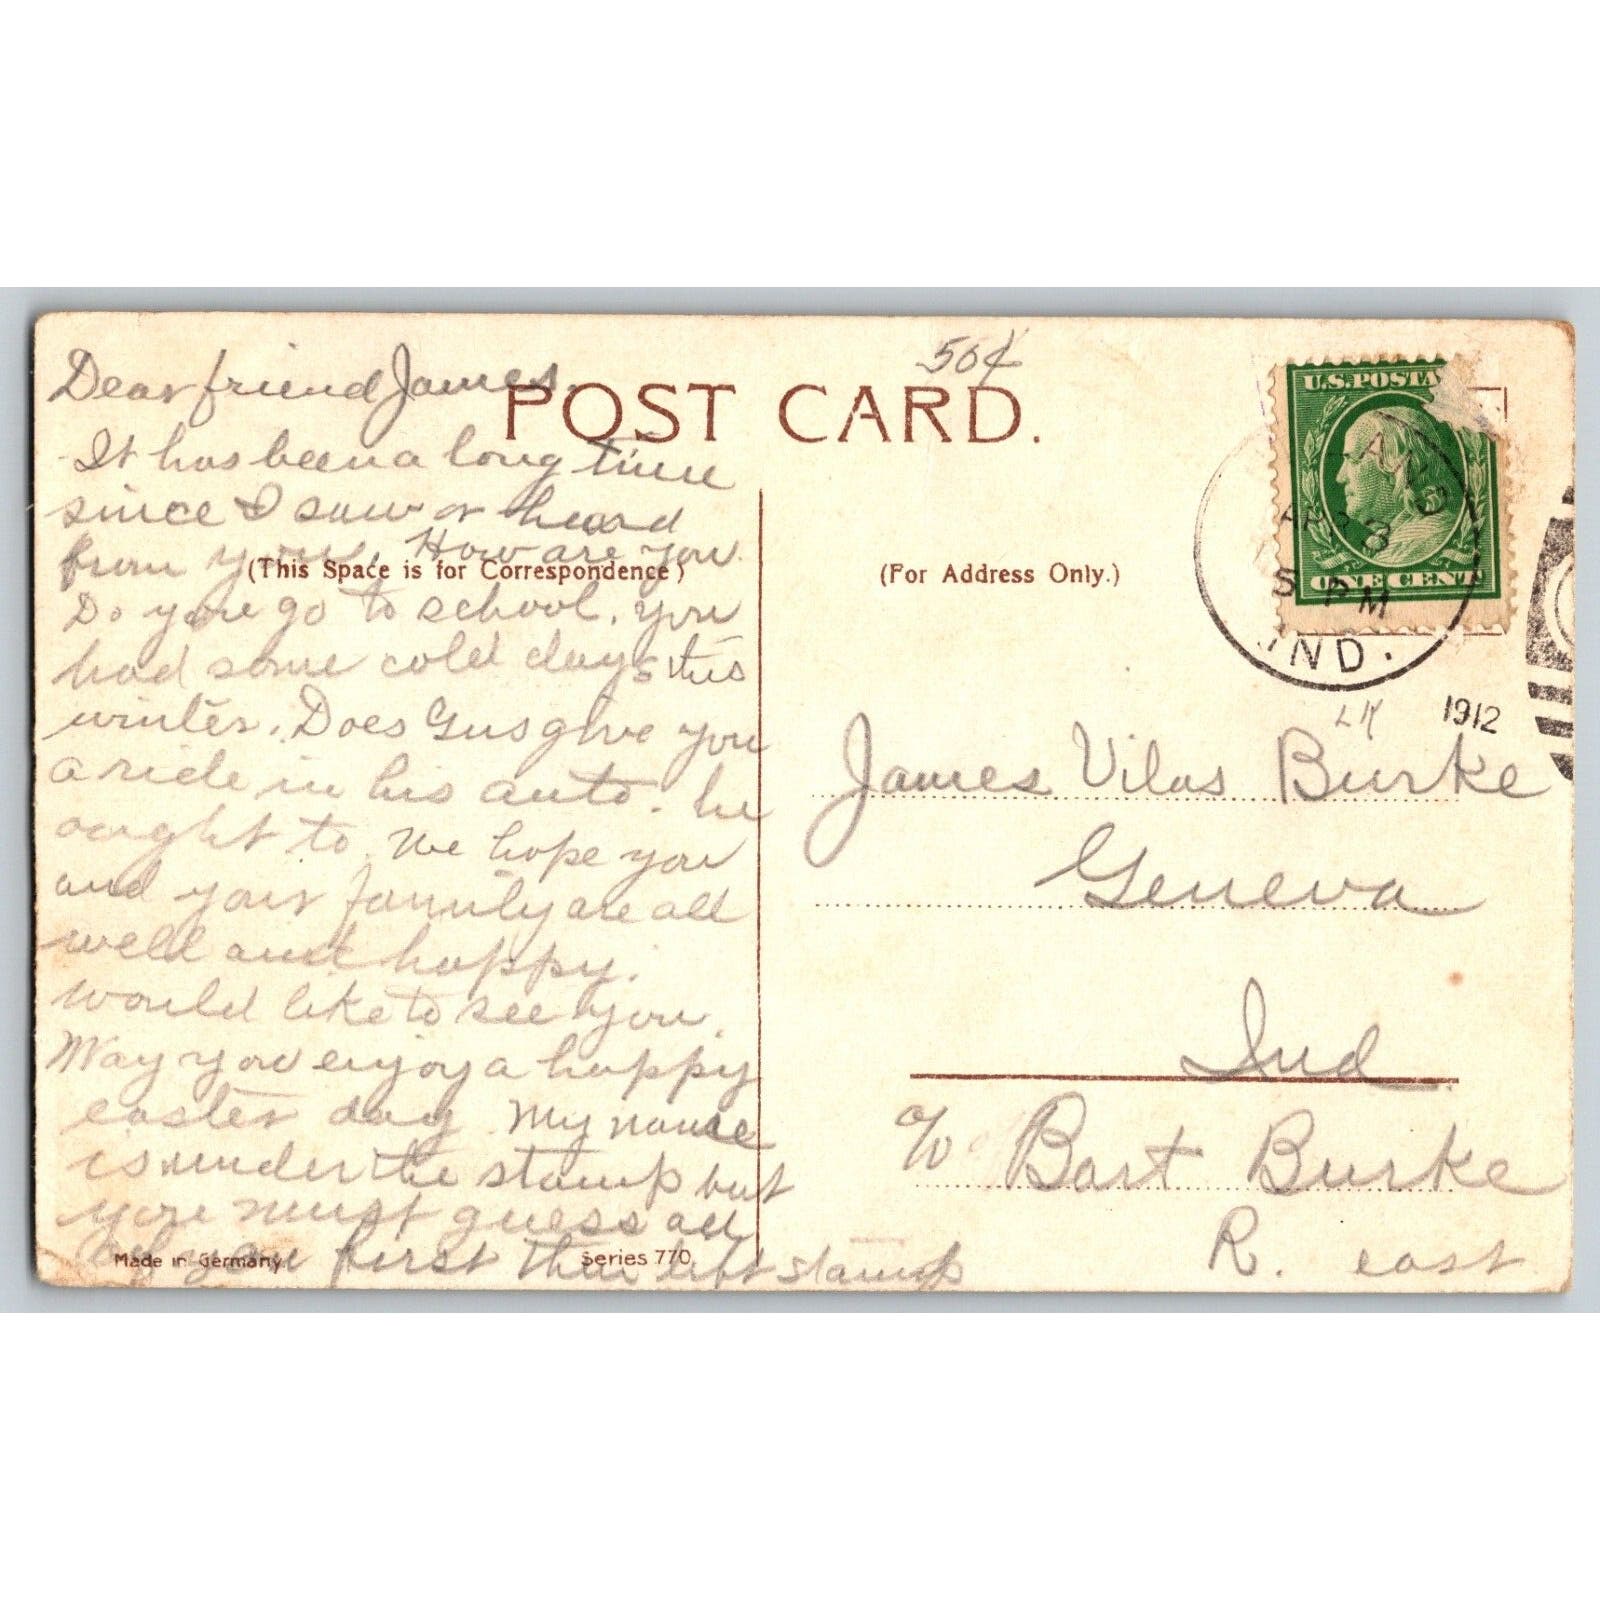 Dear friend James.
It has been a long time
since I saw or heard
from you. How are you.
Do you go to school. you
had some cold days this
winter. Does Gus give you
a ride in his auto. he
aught to. We hope you
and your family are all
well and happy.
Would like to see you.
May you enjoy a happy
easter day. My name
is under the stamp but
you must guess all
of you first then lift stamp
POST CARD.
(This Space is for Correspondence)
Made in Germany
Series 770
50¢
(For Address Only.)
U.S. POSTA
ONE CENT
LAND
3
5 PM
IND.
LK 1912
James Vilas Burke
Geneva
Ind
c/o Bart Burke
R. east